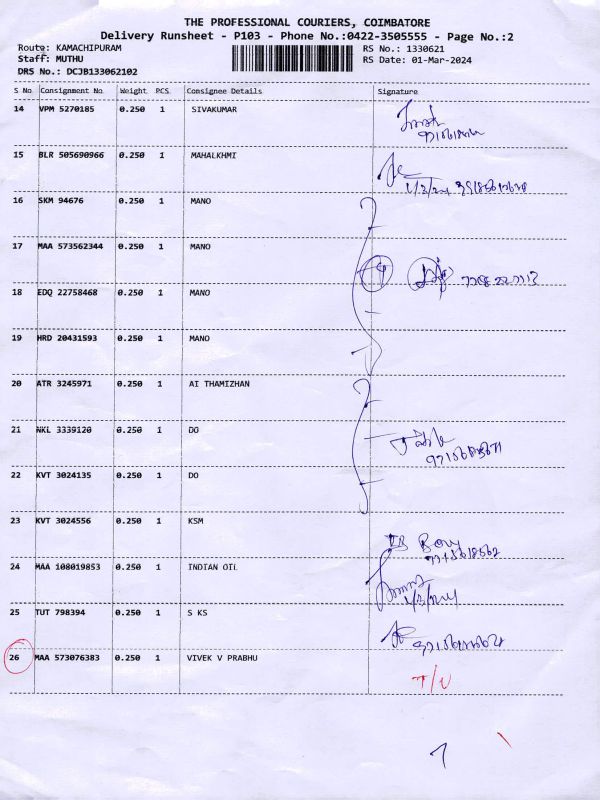 THE PROFESSIONAL COURIERS, COIMBATORE
Delivery Runsheet - P103 - Phone No.:0422-3505555 - Page No.:2
Route: KAMACHIPURAM RS No.: 1330621
Staff: MUTHU RS Date: 01-Mar-2024
DRS No.: DCJB133062102
S No Consignment No Weight PCS Consignee Details Signature
14 VPM 5270185 0.250 1 SIVAKUMAR
15 BLR 505690966 0.250 1 MAHALKHMI
1/3/24
16 SKM 94676 0.250 1 MANO
17 MAA 573562344 0.250 1 MANO
18 EDQ 22758468 0.250 1 MANO
19 HRD 20431593 0.250 1 MANO
20 ATR 3245971 0.250 1 AI THAMIZHAN
21 NKL 3339120 0.250 1 DO
22 KVT 3024135 0.250 1 DO
23 KVT 3024556 0.250 1 KSM
24 MAA 108019853 0.250 1 INDIAN OIL
1/3/24
25 TUT 798394 0.250 1 S KS
26 MAA 573076383 0.250 1 VIVEK V PRABHU